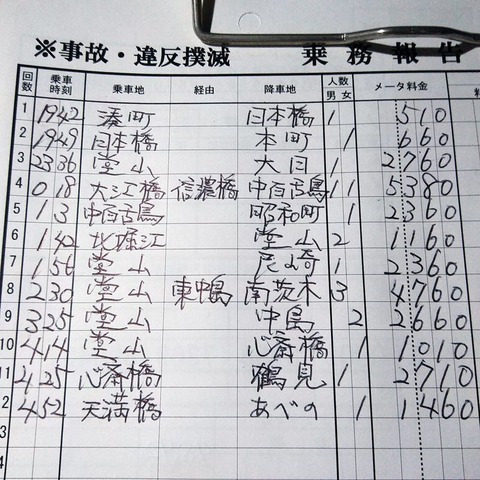 ※事故・違反撲滅 乗務報告
回数 乗車時刻 乗車地 経由 降車地 人数 男 女 メータ料金
1 1942 湊町 日本橋 1 510
2 1949 日本橋 本町 1 660
3 2336 堂山 大日 1 2760
4 0 18 大江橋 信濃橋 中百舌鳥 1 1 5380
5 1 3 中百舌鳥 昭和町 1 2360
6 1 42 北堀江 堂山 2 1160
7 1 56 堂山 尼崎 1 2360
8 2 30 堂山 東中島 南茨木 3 4760
9 3 25 堂山 中島 2 2660
10 4 14 堂山 心斎橋 1 1010
11 4 25 心斎橋 鶴見 1 2710
2 4 52 天満橋 あべの 1 1460
3
4